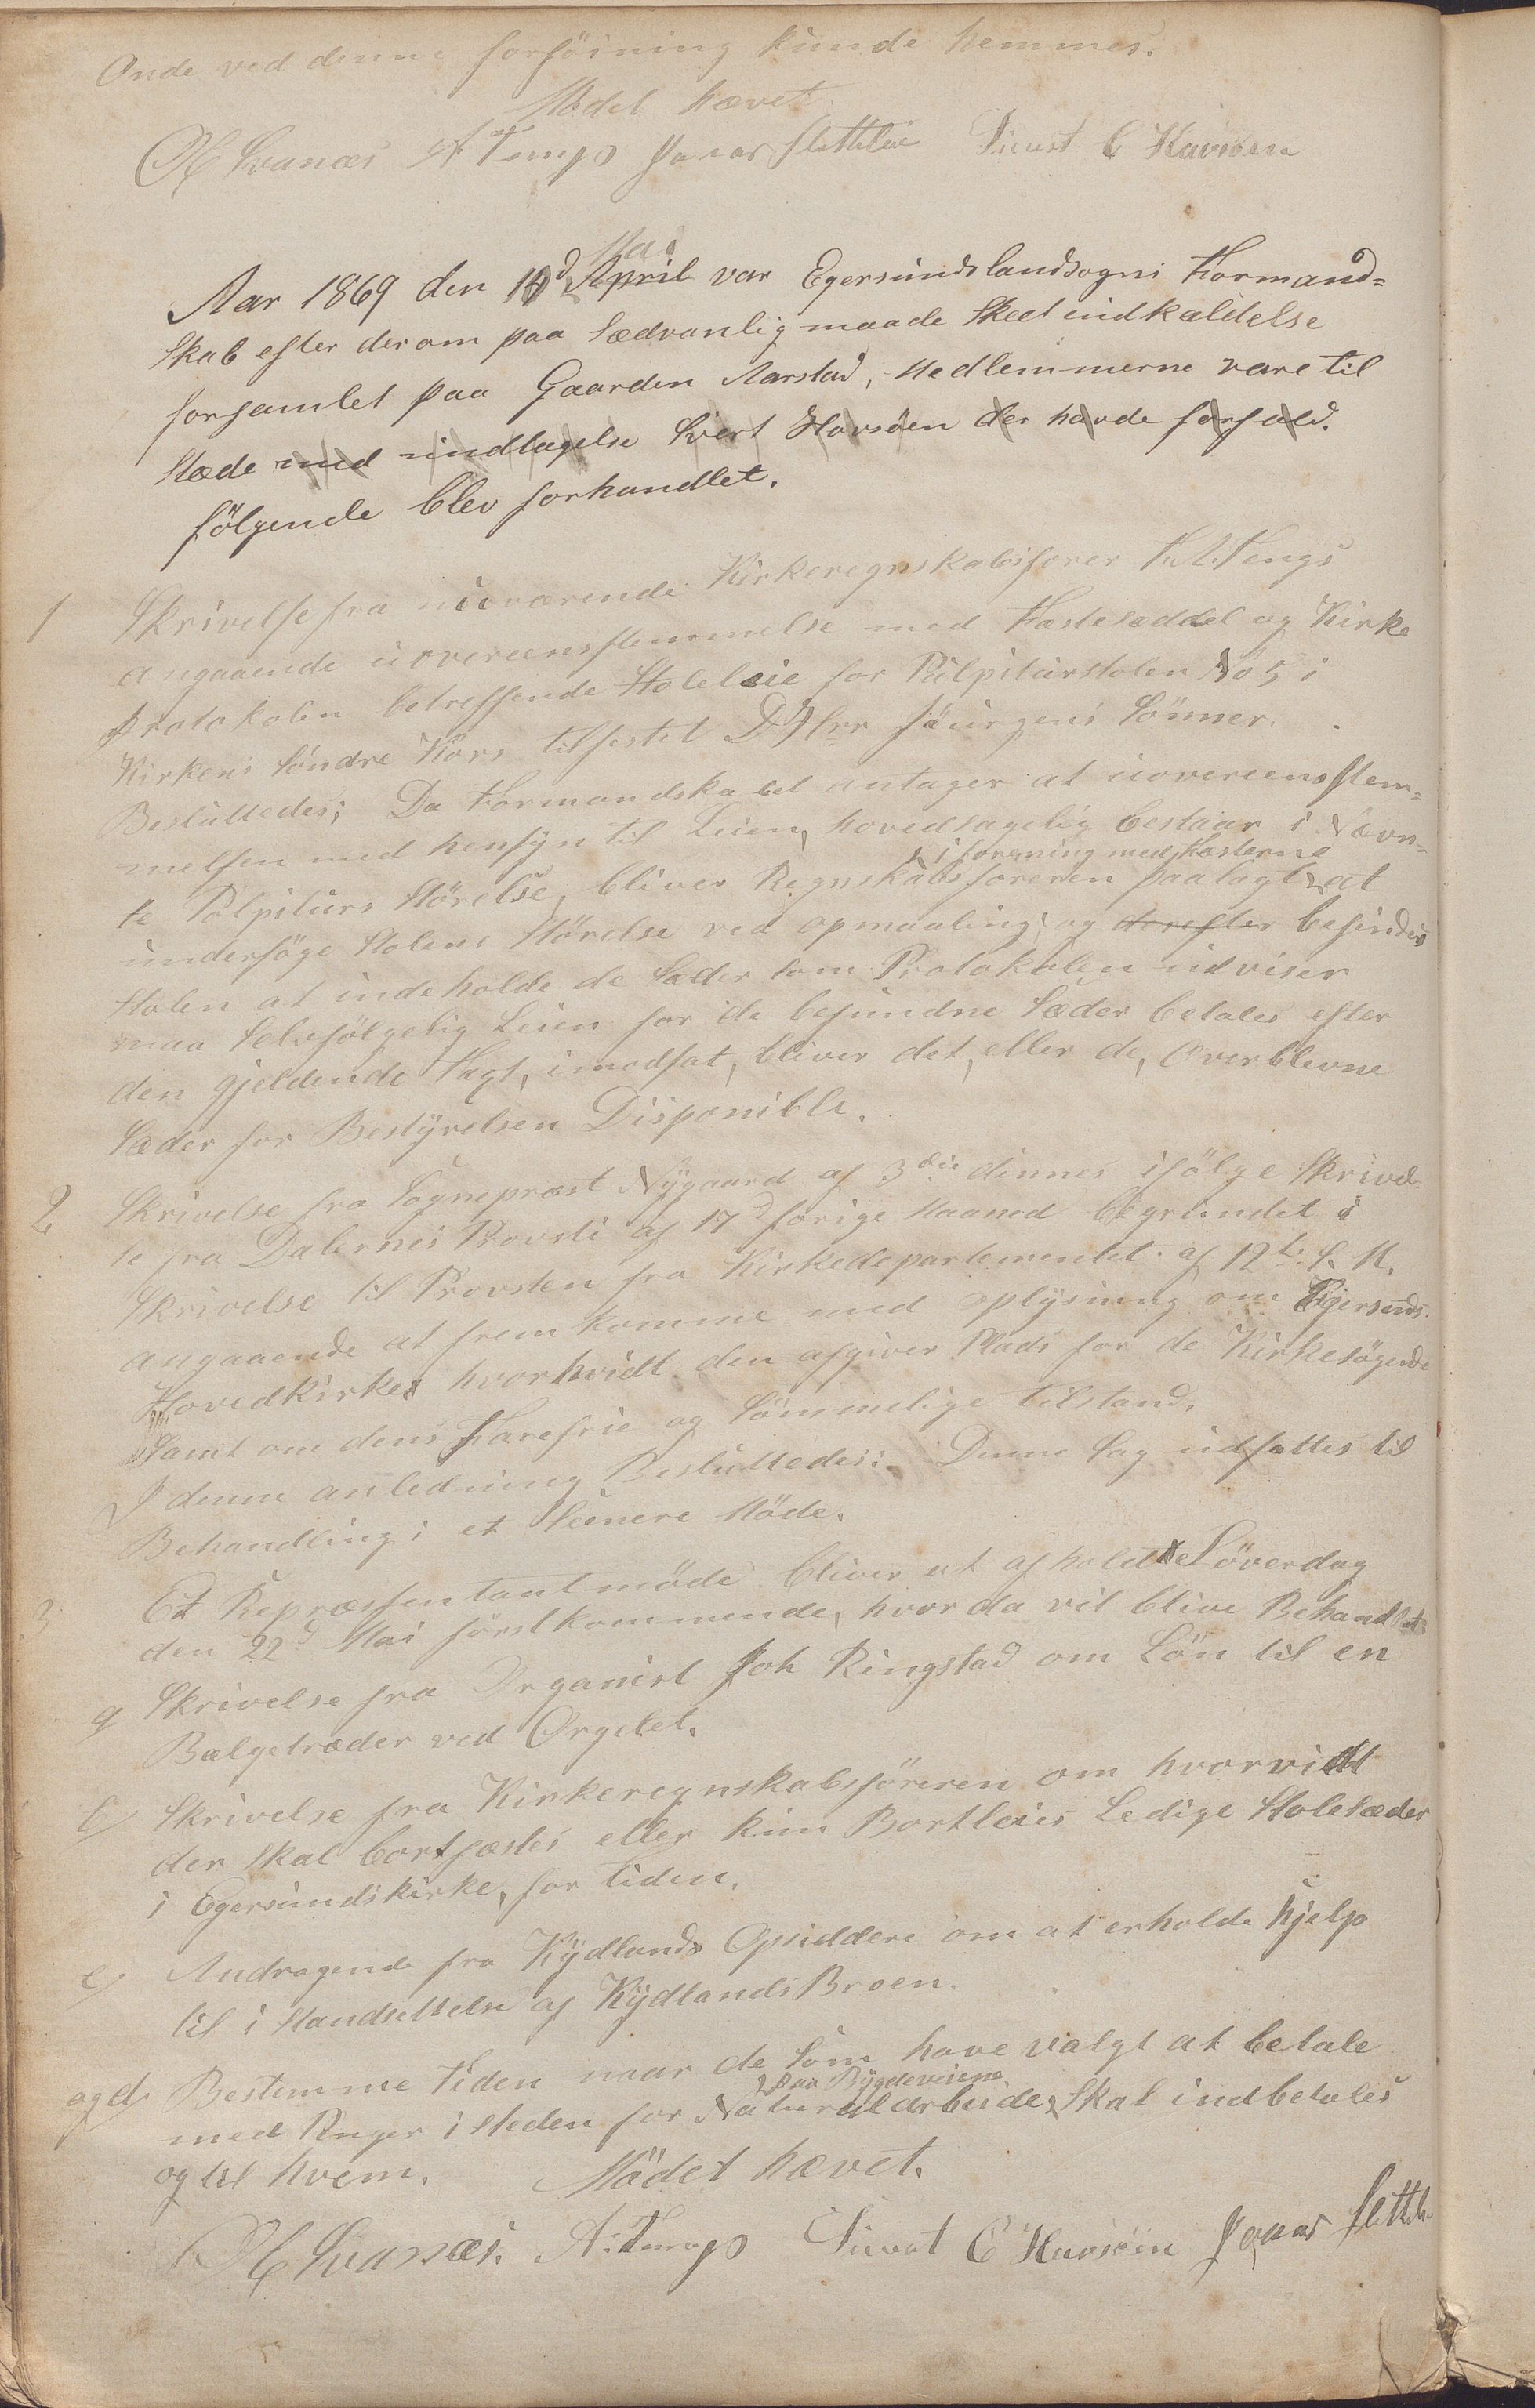 Onde ved denne forföining kunde hemmes.
Mödet hævet
Svanæs A Tengs Jonas Slettebø Sivert E Havsöen
Mai
Aar 1869 den 10d April var Egersunds landsogns Formand-
skab efter derom paa Sædvanlig maade Skeet indkaldelse
forsamlet paa Gaarden Aarstad, Medlemmerne vare til
Stæde med undtagelse Sivert Havsöen der havde forfald.
følgende blev forhandlet.
1 Skrivelse fra nuværende Kirkeregnskabsförer Tengs
angaaende uovereensstemmelse med Fæstesæddel og Kirke
protokolen betreffende Stoleleie for Pulpiturstolen No 5 i
Kirkens Söndre Kors tilfestet D'Hrr Jöurgens Sönner.
Besluttedes; Da Formandskabet antager at uovereensstem-
melsen med hensyn til Leien, hovedsagelig bestaar i Nævn-
i forening med Fæsterne
te Pulpiturs Störelse, bliver Regnskabsföreren paalagt at
undersöge Stolens Störelse ved opmaaling, og derefter befindes
Stolen at indeholde de Sæder som Protokolen udviser
maa Selvfölgelig Leien for de befundne Sæder betales efter
den gjeldende Taxt, imodsat, bliver det, eller de, Overblevne
Sæder for Bestyrelsen Disponible.
2 Skrivelse fra Sognepræst Nygaard af 3die dennes ifölge Skrivel-
se fra Dalernes Provsti af 17d forige Maaned begrundet i
Skrivelse til Provsten fra Kirkedepartementet af 12te S. M.
angaaende at fremkomme med oplysning om Egersunds-
Hovedkirke hvorhvidt den afgiver Plads for de Kirkesögende
Samt om dens Farefrie og Sömmelige Tilstand.
I denne anledning Besluttedes: Denne Sag udsættes til
Behandling i et Seenere Möde.
3 Et Repræssentantmöde bliver at afholde Löverdag
den 22d Mai förstkommende, hvor da vil blive Behandlet
a Skrivelse fra Organist Joh Ringstad om Lön til en
Bælgetræder ved Orgelet.
b) Skrivelse fra Kirkeregnskabsföreren om hvorvidt
der skal bortfæstes eller kun Bortleies Ledige Stolesæder
i Egersunds kirke, for tiden.
c) Andragende fra Kydlands Opsiddere om at erholde hjelp
til i Standsettelse af Kydlands Broen.
og d) Bestemme tiden naar de Som have valgt at betale
paa Bygdeveiene
med Penger i Steden for Naturalarbeide, Skal indbetales
og til hvem. Mödet hævet.
Svanæs. A. Tengs Sivert E Havsöen Jonas Slettebø